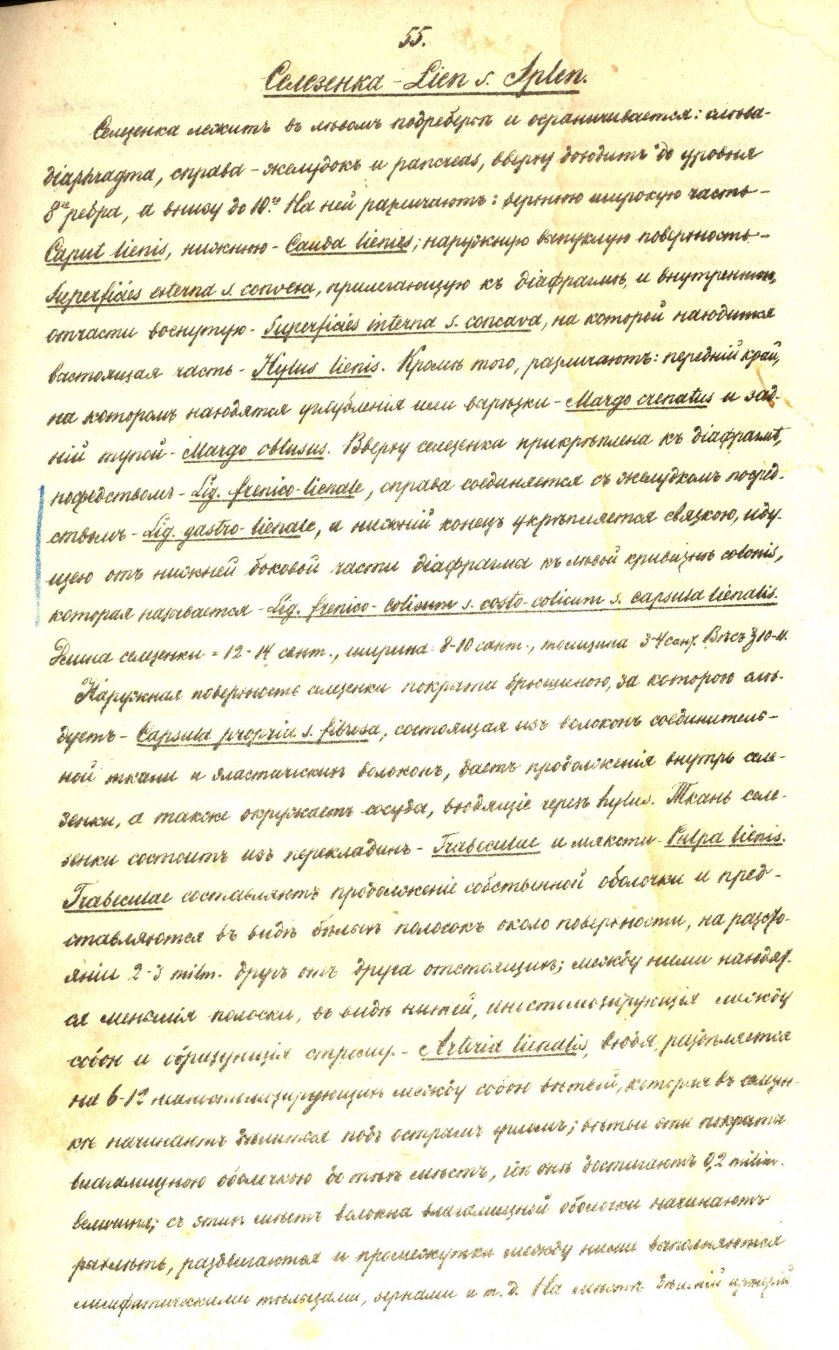 55.
Селезенка - Lien s. Splen.
Селезенка лежитъ въ лѣвомъ подреберьѣ и ограничивается: слѣва -
diaphragma, справа - желудокъ и pancreas, вверху доходитъ до уровня
8го ребра, а внизу до 10го. На ней различаютъ: верхнюю широкую часть -
Caput lienis, нижнюю - Cauda lienies; наружную выпуклую поверхность -
Superficies externa s. convexa, прилегающую къ діафрагмѣ, и внутреннюю,
отчасти вогнутую - Superficies interna s. concava, на которой находится
часть - Hylus lienis. Кромѣ того, различаютъ: передній край,
на которомъ находятся углубленія или зарѣзки - Margo crenatus и зад-
ній тупой - Margo obtusus. Вверху селезенка прикрѣплена къ діафрагмѣ,
посредствомъ - Lig. frenico-lienale, справа соединяется съ желудкомъ посред-
ствомъ - Lig. gastro-lienale, и нижній конецъ укрѣпляется связкою, иду-
щею отъ нижней боковой части діафрагмы къ лѣвой кривизнѣ colonis,
которая называется - Lig. frenico-colicum s. costo-colicum s. capsula lienalis.
Длина селезенки = 12-14 сант., ширина 8-10 сант., толщина 3-4 сант. Вѣсъ
Наружная поверхность селезенки покрыта брюшиною, за которою слѣ-
дуетъ - Capsula propria s. fibrosa, состоящая изъ волоконъ соединитель-
ной ткани и эластическихъ волоконъ, даетъ продолженія внутрь селе-
зенки, а также окружаетъ сосуды, входящіе черезъ hylus. Ткань селе-
зенки состоитъ изъ перекладинъ - Trabeculae и мякоти - Pulpa lienis.
Trabeculae составляютъ продолженіе собственной оболочки и пред-
ставляются въ видѣ бѣлыхъ полосокъ около поверхности, на разсто-
яніи 2-3 milm. другъ отъ друга отстоящихъ; между ними находят-
ся меньшія полоски, въ видѣ нитей, анастомозирующія между
собою и образующія строму. - Arteria lienalis, входя, раздѣляется
на 6-12 между собою вѣтвей, которыя въ селезен-
кѣ начинаютъ дѣлиться подъ острымъ угломъ; вѣтви эти покрыты
влагалищною оболочкою до тѣхъ мѣстъ, гдѣ онѣ достигаютъ 0,2 milim.
величины; съ этихъ мѣстъ волокна влагалищной оболочки начинаютъ
рыхлѣть, раздвигаются и промежутки между ними заполняются
лимфатическими тѣльцами, зернами и т. д. На мѣстѣ дѣленій артерій